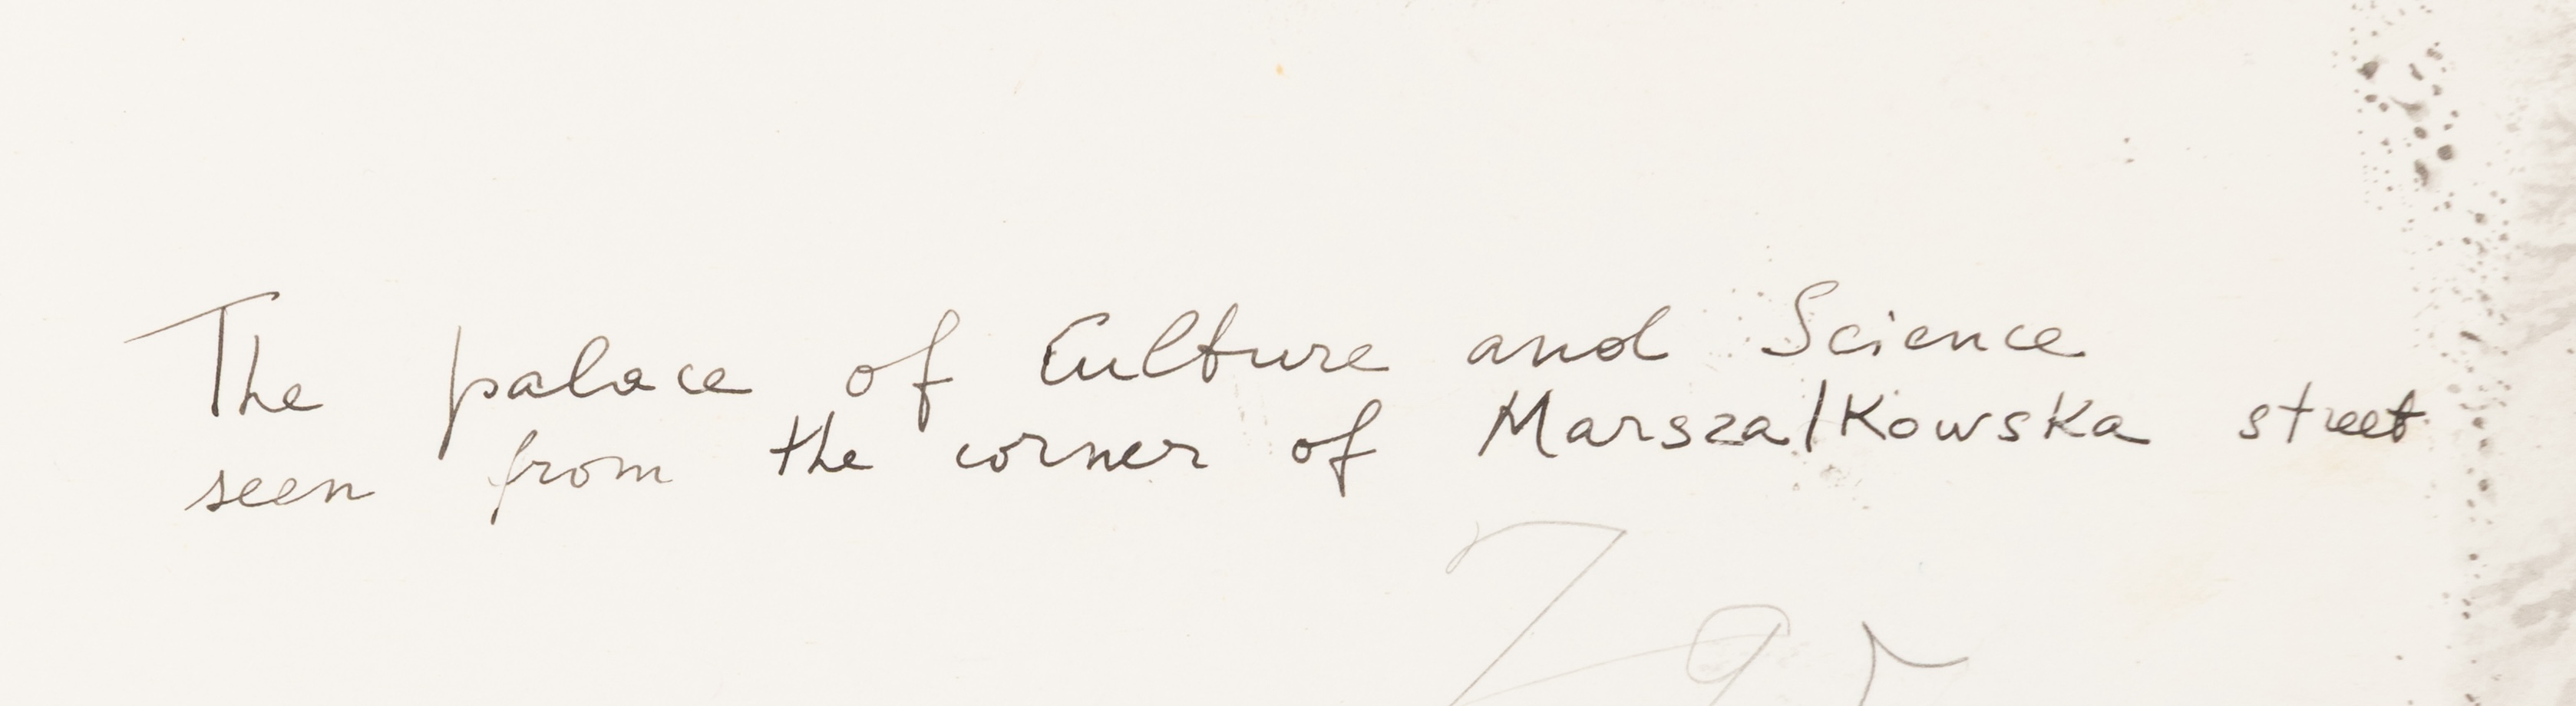 The palace of Culture and Science
seen from the corner of Marszalkowska street